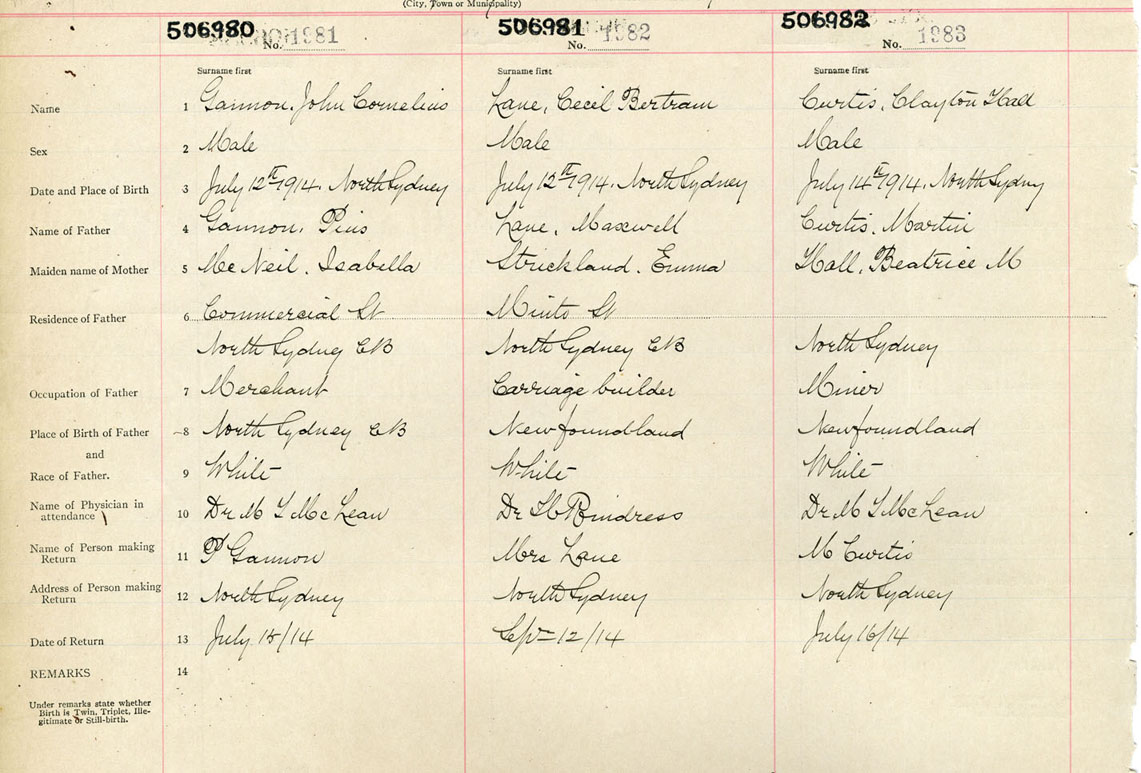 (City, Town or Municipality)
506980 506981 506982
No. 1981 No. 1982 No. 1983
Surname first Surname first Surname first
Name 1 Gannon, John Cornelius Lane, Cecil Bertram Curtis, Clayton Hall
Sex 2 Male Male Male
Date and Place of Birth 3 July 12th 1914. North Sydney July 12th 1914. North Sydney July 14th 1914. North Sydny
Name of Father 4 Gannon, Pius Lane, Maxwell Curtis, Martin
Maiden name of Mother 5 McNeil, Isabella Strickland, Emma Hall, Beatrice M
Residence of Father 6 Commercial St Minto St
North Sydney CB North Sydney CB North Sydney
Occupation of Father 7 Merchant Carriage builder Miner
Place of Birth of Father 8 North Sydney CB Newfoundland Newfoundland
and
Race of Father. 9 White White White
Name of Physician in
attendance 10 Dr M T McLean Dr Rindress Dr M T McLean
Name of Person making
Return 11 P Gannon Mrs Lane M Curtis
Address of Person making
Return 12 North Sydney North Sydney North Sydney
Date of Return 13 July 15/14 Sept 12/14 July 16/14
REMARKS 14
Under remarks state whether
Birth is Twin, Triplet, Ille-
gitimate or Still-birth.